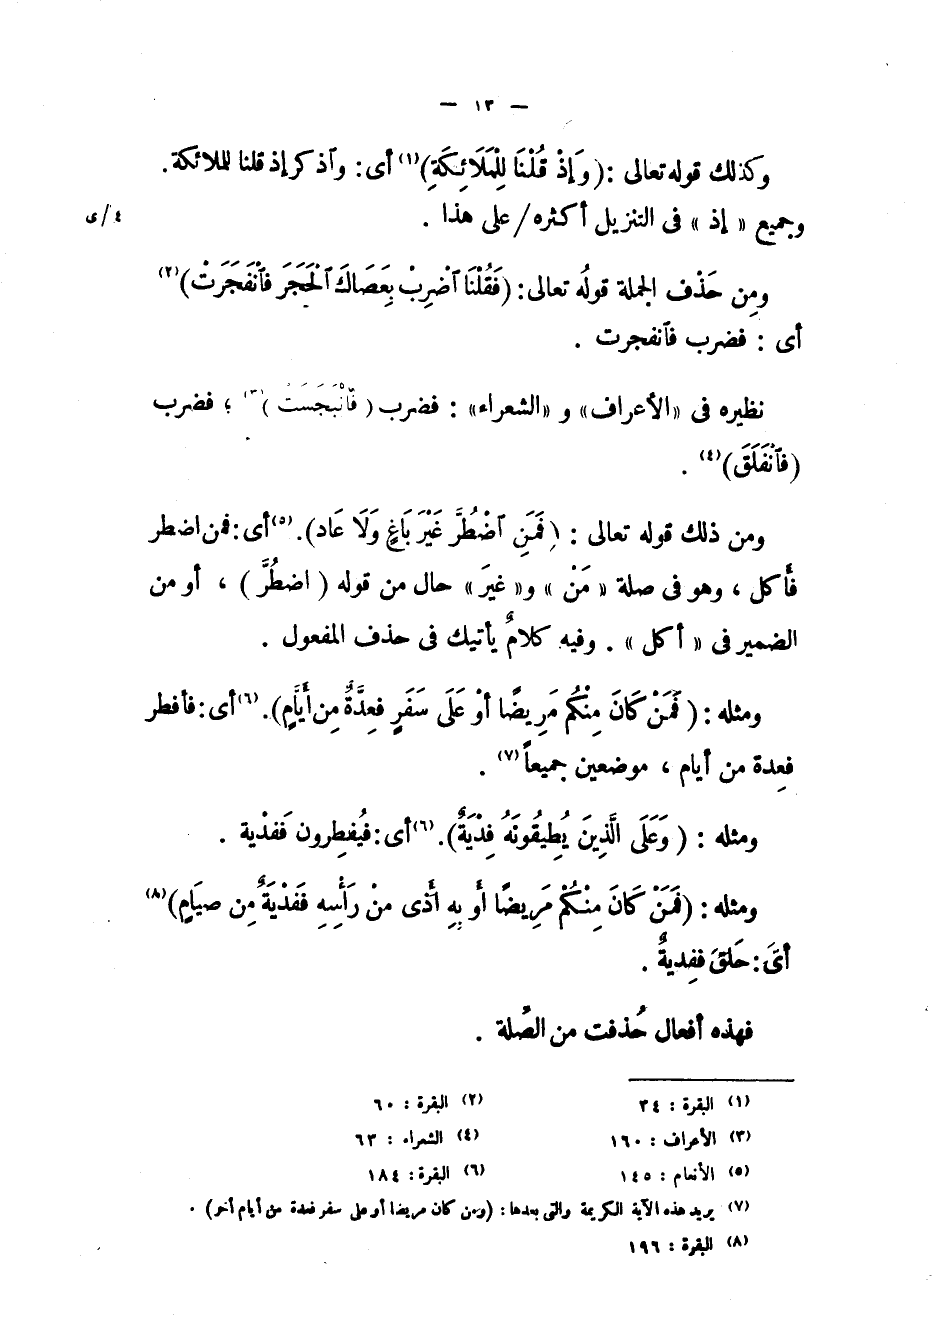 — ١٣ —
وكذلك قوله تعالى : ( وَإِذْ قُلْنَا لِلْمَلَائِكَةِ )(١) أى : وآذكر إذ قلنا للملائكة .
وجميع « إذ » فى التنزيل أكثره / على هذا . ٤/ى
ومِن حَذْف الجملة قولُه تعالى : ( فَقُلْنَا ٱضْرِبْ بِعَصَاكَ ٱلْحَجَرَ فَٱنْفَجَرَتْ )(٢)
أى : فضرب فآنفجرت .
نظيره فى «الأعراف» و «الشعراء» : فضرب ( فَانْبَجَسَتْ )(٣) ؛ فضرب
( فَٱنْفَلَقَ )(٤) .
ومن ذلك قوله تعالى : ( فَمَنِ ٱضْطُرَّ غَيْرَ بَاغٍ وَلَا عَاد ). (٥) أى : فمن اضطر
فأَكل ، وهو فى صلة « مَنْ » و« غيرَ » حال من قوله ( اضطُرَّ ) ، أو من
الضمير فى « أكل » . وفيه كلامٌ يأتيك فى حذف المفعول .
ومثله : ( فَمَنْ كَانَ مِنْكُم مَرِيضًا أَوْ عَلَى سَفَرٍ فعِدَّةٌ مِن أَيَّامٍ ). (٦) أى : فأفطر
فعِدة من أيام ، موضعين جميعاً(٧) .
ومثله : ( وَعَلَى الَّذِينَ يُطِيقُونَهُ فِدْيَةٌ ). (٦) أى : فيُفطِرون فَفدْية .
ومثله : ( فَمَنْ كَانَ مِنْكُمْ مَرِيضًا أَو بِهِ أَذًى منْ رَأْسِهِ فَفدْيَةٌ مِن صيَامٍ )(٨)
أىَ : حَلقَ ففِديةٌ .
فهذه أفعال حُذفت من الصِّلة .
(١) البقرة : ٣٤ (٢) البقرة : ٦٠
(٣) الأعراف : ١٦٠ (٤) الشعراء : ٦٣
(٥) الأنعام : ١٤٥ (٦) البقرة : ١٨٤
(٧) يريد هذه الآية الكريمة والتى بعدها : (ومن كان مريضا أو على سفر فعدة من أيام أخر) .
(٨) البقرة : ١٩٦